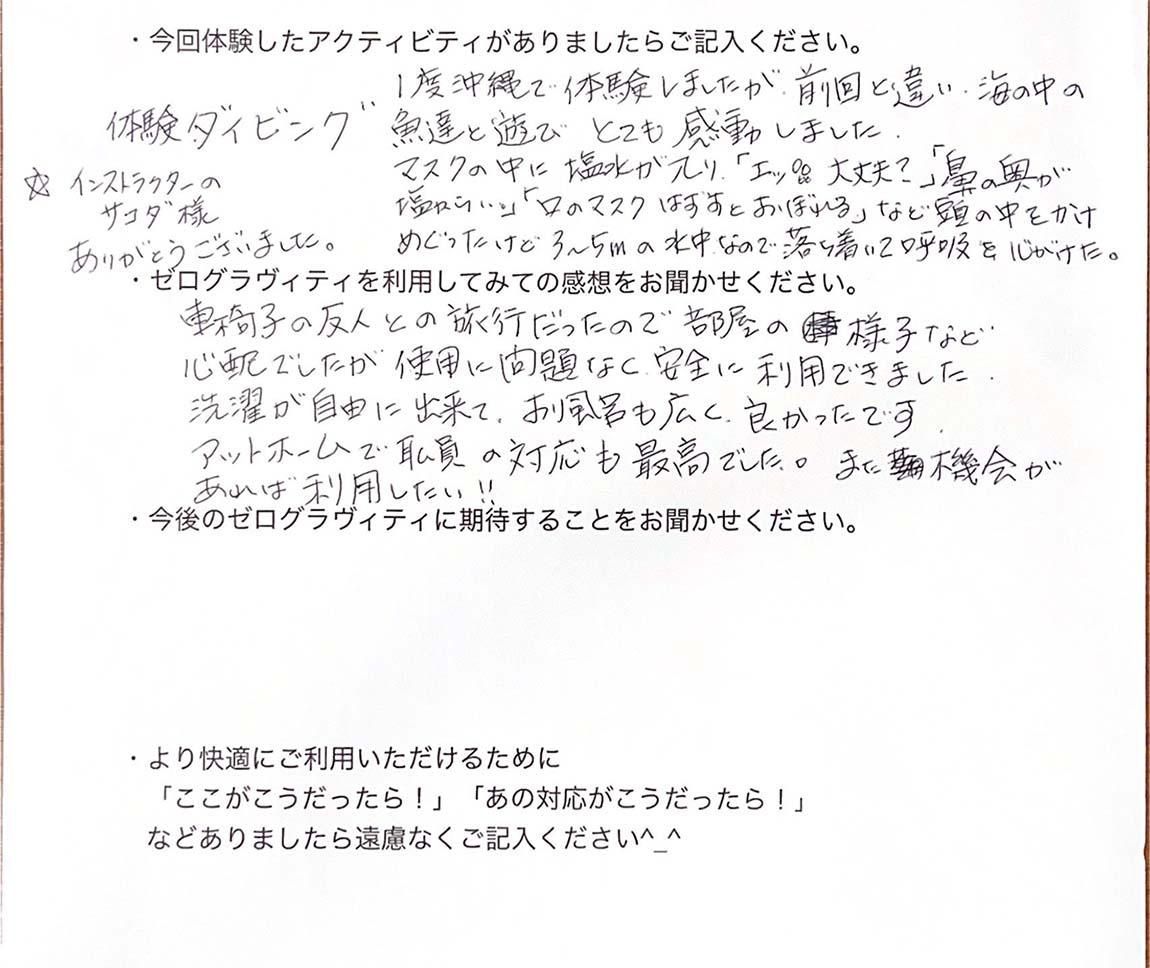 ・今回体験したアクティビティがありましたらご記入ください。
体験ダイビング
1度沖縄で体験しましたが、前回と違い、海の中の
魚達と遊び とても感動しました.
マスクの中に塩水が入り、「エッ 大丈夫?」「鼻の奥が
塩からい」「口のマスクはずすとおぼれる」など頭の中をかけ
めぐったけど 3〜5mの水中なので落ち着いて呼吸を心がけた。
☆ インストラクターの
サコダ様
ありがとうございました。
・ゼログラヴィティを利用してみての感想をお聞かせください。
車椅子の友人との旅行だったので部屋の様子など
心配でしたが 使用に問題なく、安全に利用できました.
洗濯が自由に出来て、お風呂も広く、良かったです.
アットホームで職員の対応も最高でした。また機会が
あれば利用したい!!
・今後のゼログラヴィティに期待することをお聞かせください。
・より快適にご利用いただけるために
「ここがこうだったら!」「あの対応がこうだったら!」
などありましたら遠慮なくご記入ください^_^